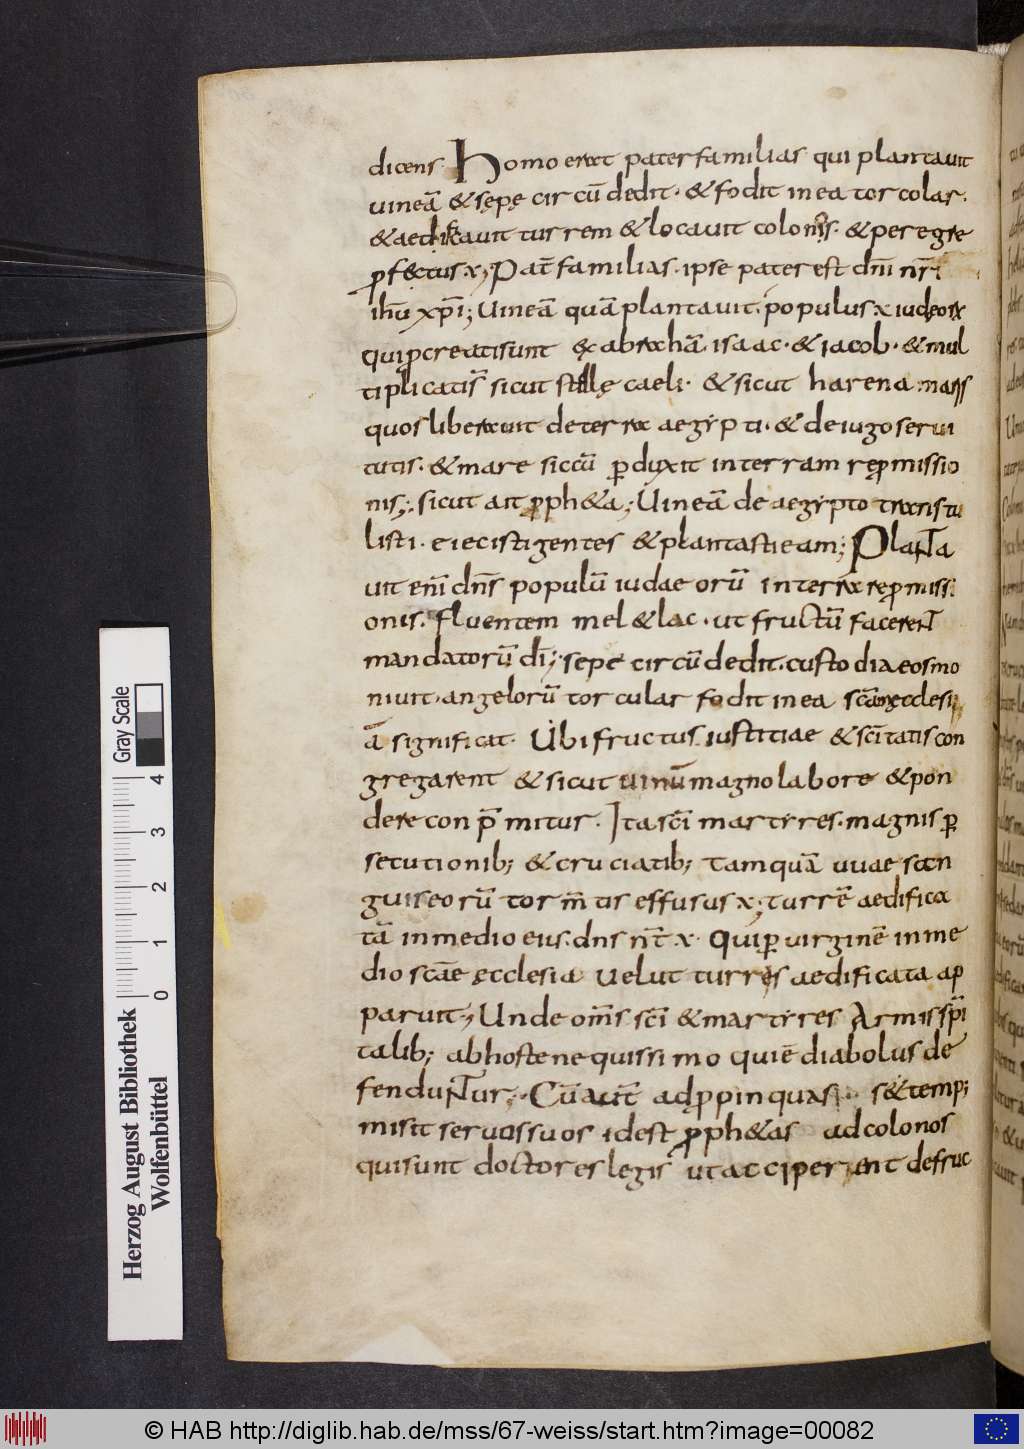 dicens. Homo erat pater familias qui plantauit
uineā & sępę circū dedit. & fodit in ea torcolar.
& aedificauit turrem & locauit colonis. & peregre
ꝓfectus.x; Pat̄ familias. ipse pater est dn̄i nr̄i
ihū xp̄i; Uineā quā plantauit. populus x iudeorꝝ
qui ꝓcreati sunt ęx abrachā. isaac. & iacob. & mul
tiplicatis̄ sicut stellę caeli. & sicut harena maris
quos liberauit de terra aegypti. & de iugo serui
tutis. & mare siccū ꝑduxit in terram reꝓmissio
nis; sicut ait ꝓph&a; Uineā de aegypto transtu
listi. eiecisti gentes & plantasti eam; Planta
uit enī dn̄s populū iudaeorū in terra reꝓmissi
onis. fluentem mel & lac. ut fructū facerent
mandatorū dī; sepe circūdedit. custodia eos mo
niuit. angelorū torcular fodit in ea scām ęcclesi
ā significat. Ubi fructus iustitiae & scītatis con
gregarent & sicut uinū magno labore & pon
dere con p̄mitur. Ita scī martyres. magnis ꝑ
secutionib; & cruciatib; tamquā uuae san
guis eorū torm̄tis effusus x; turrē aedifica
tā in medio eius. dns nr̄t x. Qui ꝑ uirginē in me
dio scāe ęcclesia uelut turres aedificata ap
paruit; Unde om̄s scī & martyres Armis sp̄i
talib; ab hoste nequissimo qui ē diabolus de
fenduntur; Cū aut̄ adꝓpinquasi s& temp;
misit seruos suos id est ꝓph&as ad colonos
qui sunt doctores legis ut acciperent de fruc
Herzog August Bibliothek
Wolfenbüttel
Gray Scale
0 1 2 3 4
© HAB http://diglib.hab.de/mss/67-weiss/start.htm?image=00082